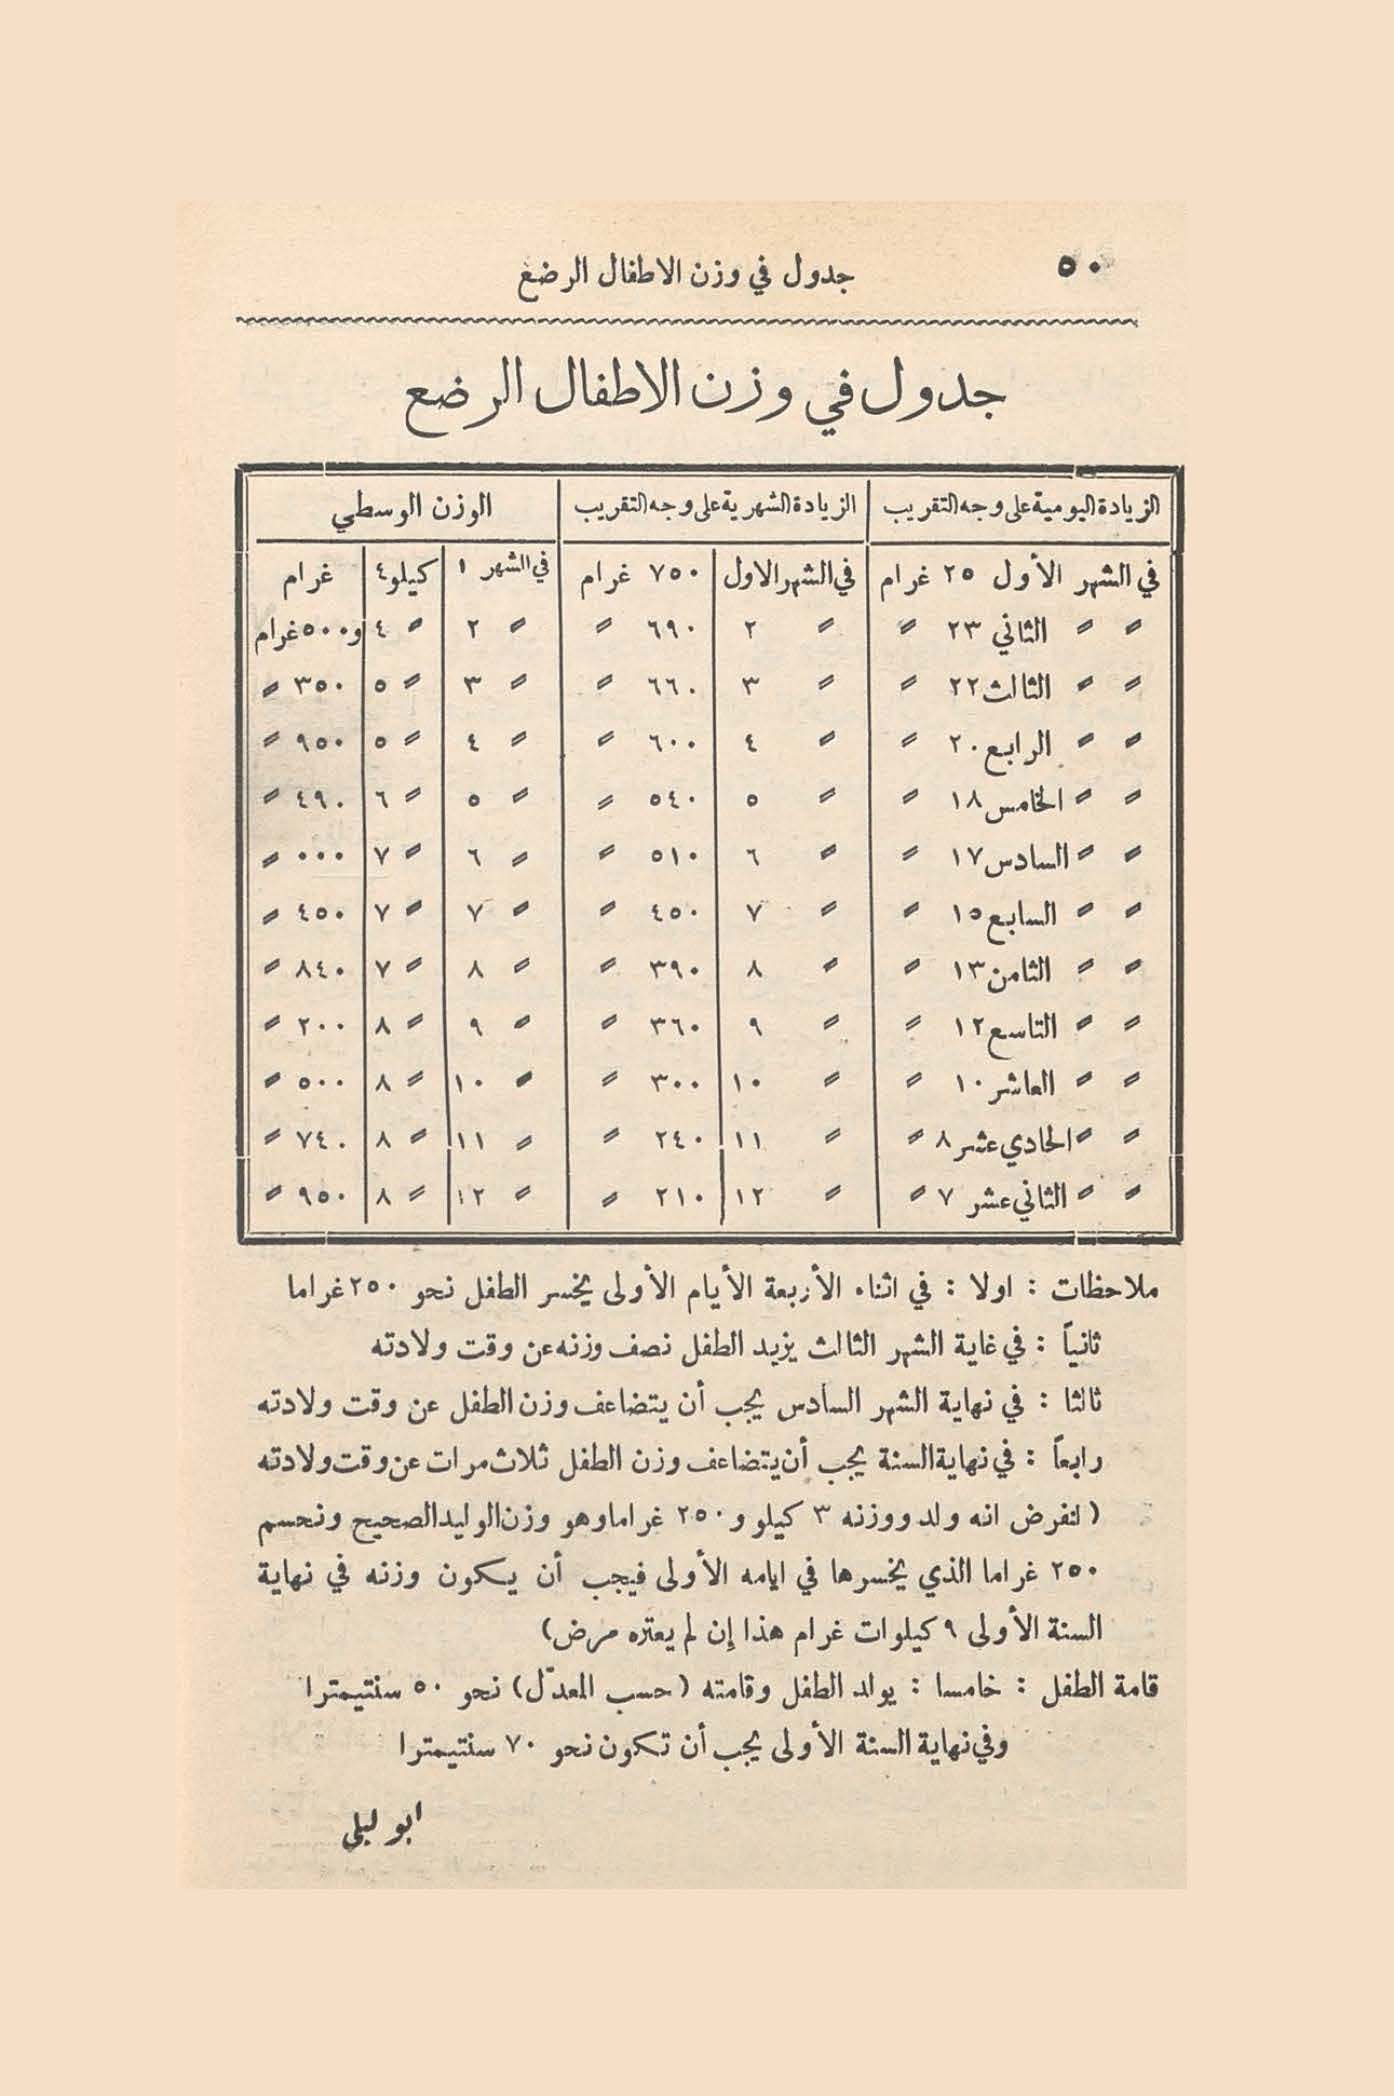 ٥٠
جدول في وزن الاطفال الرضع
جدول في وزن الاطفال الرضع
الزيادة اليومية على وجه التقريب الزيادة الشهرية على وجه التقريب الوزن الوسطي
في الشهر الأول ٢٥ غرام في الشهر الاول ٧٥٠ غرام في الشهر ١ كيلو ٤ غرام
〃 〃 الثاني ٢٣ 〃 〃 ٢ ٦٩٠ 〃 〃 ٢ 〃 ٤ و٥٠٠ غرام
〃 〃 الثالث ٢٢ 〃 〃 ٣ ٦٦٠ 〃 〃 ٣ 〃 ٥ ٣٥٠ 〃
〃 〃 الرابع ٢٠ 〃 〃 ٤ ٦٠٠ 〃 〃 ٤ 〃 ٥ ٩٥٠ 〃
〃 〃 الخامس ١٨ 〃 〃 ٥ ٥٤٠ 〃 〃 ٥ 〃 ٦ ٤٩٠ 〃
〃 〃 السادس ١٧ 〃 〃 ٦ ٥١٠ 〃 〃 ٦ 〃 ٧ ٠٠٠ 〃
〃 〃 السابع ١٥ 〃 〃 ٧ ٤٥٠ 〃 〃 ٧ 〃 ٧ ٤٥٠ 〃
〃 〃 الثامن ١٣ 〃 〃 ٨ ٣٩٠ 〃 〃 ٨ 〃 ٧ ٨٤٠ 〃
〃 〃 التاسع ١٢ 〃 〃 ٩ ٣٦٠ 〃 〃 ٩ 〃 ٨ ٢٠٠ 〃
〃 〃 العاشر ١٠ 〃 〃 ١٠ ٣٠٠ 〃 〃 ١٠ 〃 ٨ ٥٠٠ 〃
〃 〃 الحادي عشر ٨ 〃 〃 ١١ ٢٤٠ 〃 〃 ١١ 〃 ٨ ٧٤٠ 〃
〃 〃 الثاني عشر ٧ 〃 〃 ١٢ ٢١٠ 〃 〃 ١٢ 〃 ٨ ٩٥٠ 〃
ملاحظات : اولا : في اثناء الأربعة الأيام الأولى يخسر الطفل نحو ٢٥٠ غراما
ثانياً : في غاية الشهر الثالث يزيد الطفل نصف وزنه عن وقت ولادته
ثالثا : في نهاية الشهر السادس يجب أن يتضاعف وزن الطفل عن وقت ولادته
رابعاً : في نهاية السنة يجب أن يتضاعف وزن الطفل ثلاث مرات عن وقت ولادته
(لنفرض انه ولد ووزنه ٣ كيلو و٢٥٠ غراما وهو وزن الوليد الصحيح ونحسم
٢٥٠ غراما الذي يخسرها في ايامه الأولى فيجب أن يكون وزنه في نهاية
السنة الأولى ٩ كيلوات غرام هذا إن لم يعتره مرض)
قامة الطفل : خامسا : يولد الطفل وقامته (حسب المعدّل) نحو ٥٠ سنتيمترا
وفي نهاية السنة الأولى يجب أن تكون نحو ٧٠ سنتيمترا
ابو ليلى